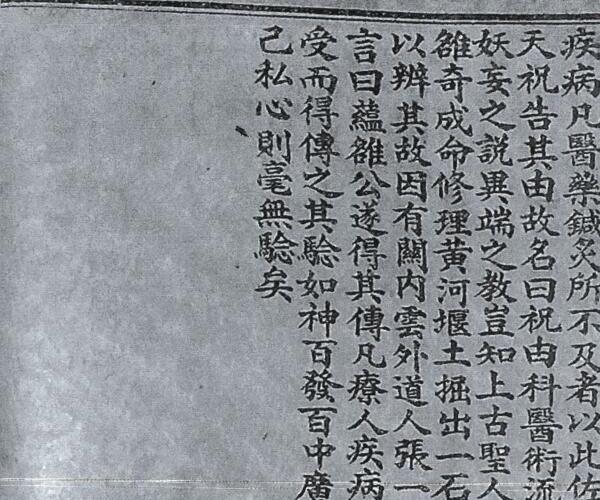 疾病凡醫藥鍼灸所不及者以此佐
天祝告其由故名曰祝由科醫術流
妖妄之説異端之教豈知上古聖人
雒奇成命修理黃河堰土掘出一石
以辨其故因有關內雲外道人張一
言曰蘊雒公遂得其傳凡療人疾病
受而得傳之其驗如神百發百中廣
己私心則毫無騐矣